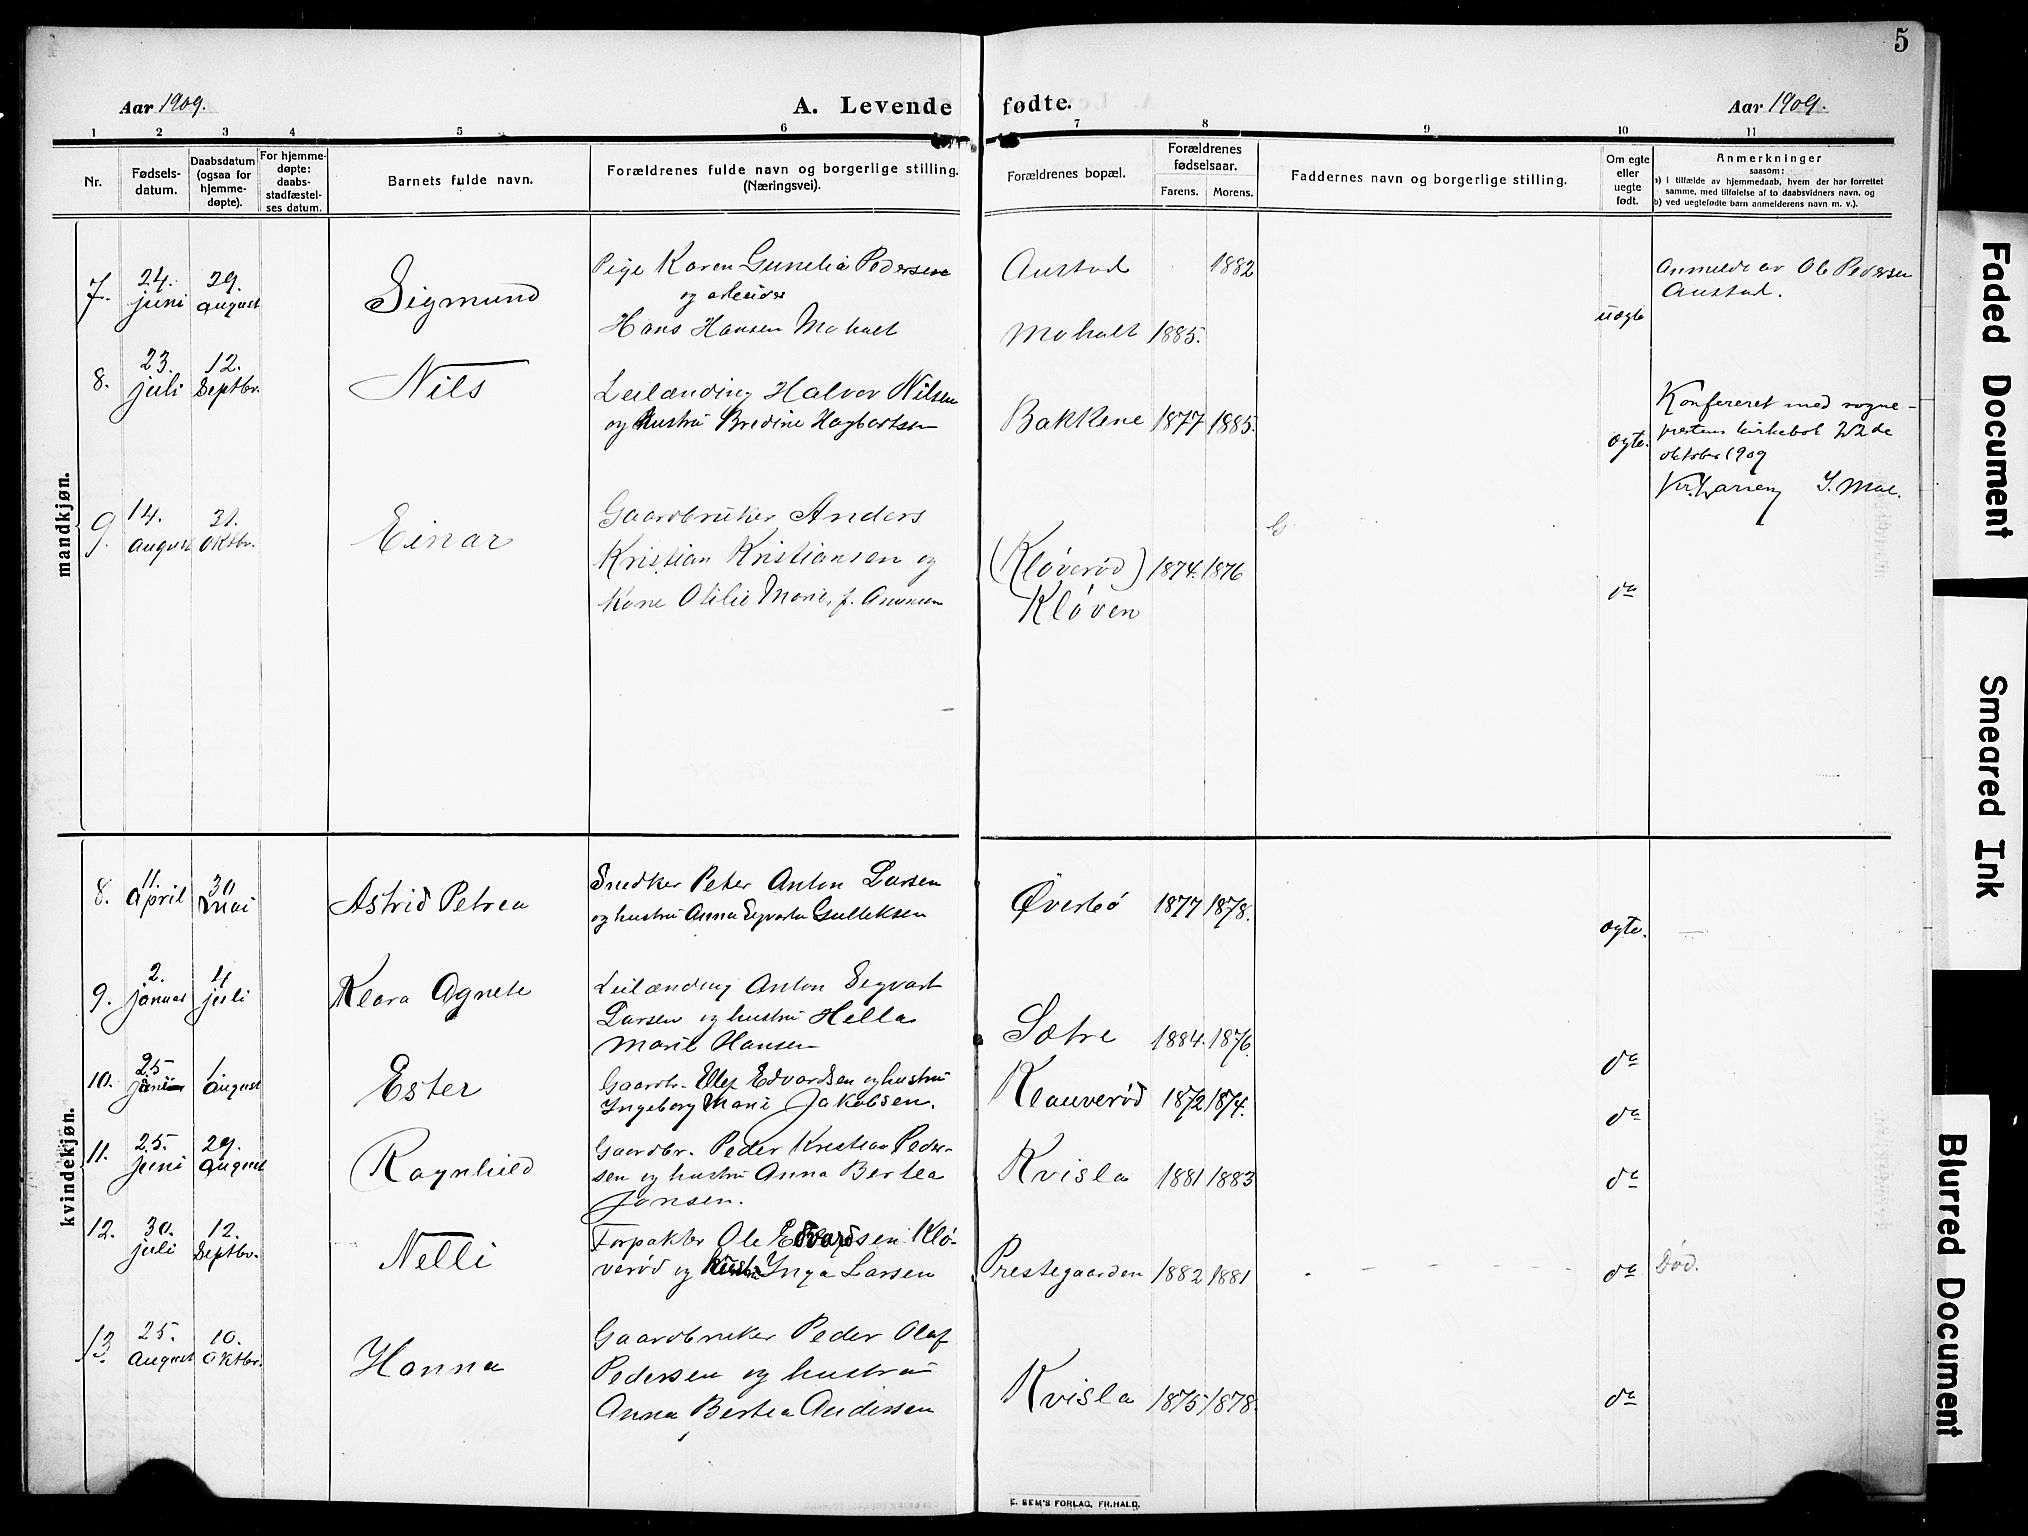 5
Aar 1909.
A. Levende fødte.
Aar 1909.
1 2 3 4 5 6 7 8 9 10 11
Nr.
Fødselsdatum.
Daabsdatum (ogsaa for hjemmedøpte).
For hjemmedøpte: daabsstadfæstelses datum.
Barnets fulde navn.
Forældrenes fulde navn og borgerlige stilling.
(Næringsvei).
Forældrenes bopæl.
Forældrenes fødselsaar.
Farens. Morens.
Faddernes navn og borgerlige stilling.
Om egte eller uegte født.
Anmerkninger
saasom:
a) i tilfælde av hjemmedaab, hvem der har forrettet
samme, med tilføielse af to daabsvidners navn, og
b) ved uegtefødte barn anmelderens navn m. v.).
mandkjøn.
7. 24. juni 29. august Sigmund
Pige Karen Gunelia Pedersen
og arbeider
Hans Hansen Moholt
Austad 1882
Moholt 1885.
uægte
Anmeldt av Ole Pedersen
Austad.
8. 23. juli 12. Septbr. Nils
Leilænding Halvor Nilsen
og hustru Bredine Hagbartsen
Bakkene 1877 1885.
ægte.
Konfereret med sogne-
prestens kirkebok 22de
oktober 1909
Kr. Larsen
9. 14. august 31. oktbr. Einar
Gaardbruker Anders
Kristian Kristiansen og
Kone Otilie Marie, f.
(Kløverød) 1874. 1876
Kløven
G
do
kvindekjøn.
8. 11. april 30 mai Astrid Petrea
Snedker Peter Anton Larsen
og hustru Anna Sigvarta Gulleksen
Øverbø 1877 1878.
ægte.
9. 2. januar 4 juli Klara Agnete
Leilænding Anton Sigvart
Larsen og hustru Hella
Marie Hansen
Sætre 1884. 1876.
do
10. 25 juni 1 august Ester
Gaardbr. Ellef Edvardsen og hustru
Ingeborg Marie Jakobsen.
Klauverød 1872 1874.
do
11. 25. juni 29. august Ragnhild
Gaardbr. Peder Kristian Peder-
sen og hustru Anna Bertea
Jansen.
Kvisla 1881 1883
do
12. 30. juli 12. Septbr. Nelli
Forpakter Ole Edvardsen Klø-
verød og hustru Inga Larsen
Prestegaarden 1882 1881
do
Død.
13. 25. august 10. oktbr. Hanna
Gaardbruker Peder Olaf
Pedersen og hustru
Anna Bertea Anderssen
Kvisla 1875 1878.
do
E. SEM'S FORLAG, FR.HALD.
Faded Document
Smeared Ink
Blurred Document